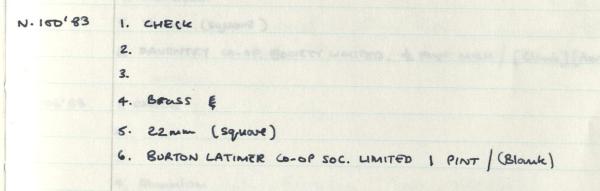 N.150'83 1. CHECK
2.
3.
4. Brass &
5. 22mm (square)
6. BURTON LATIMER CO-OP SOC. LIMITED 1 PINT / (Blank)